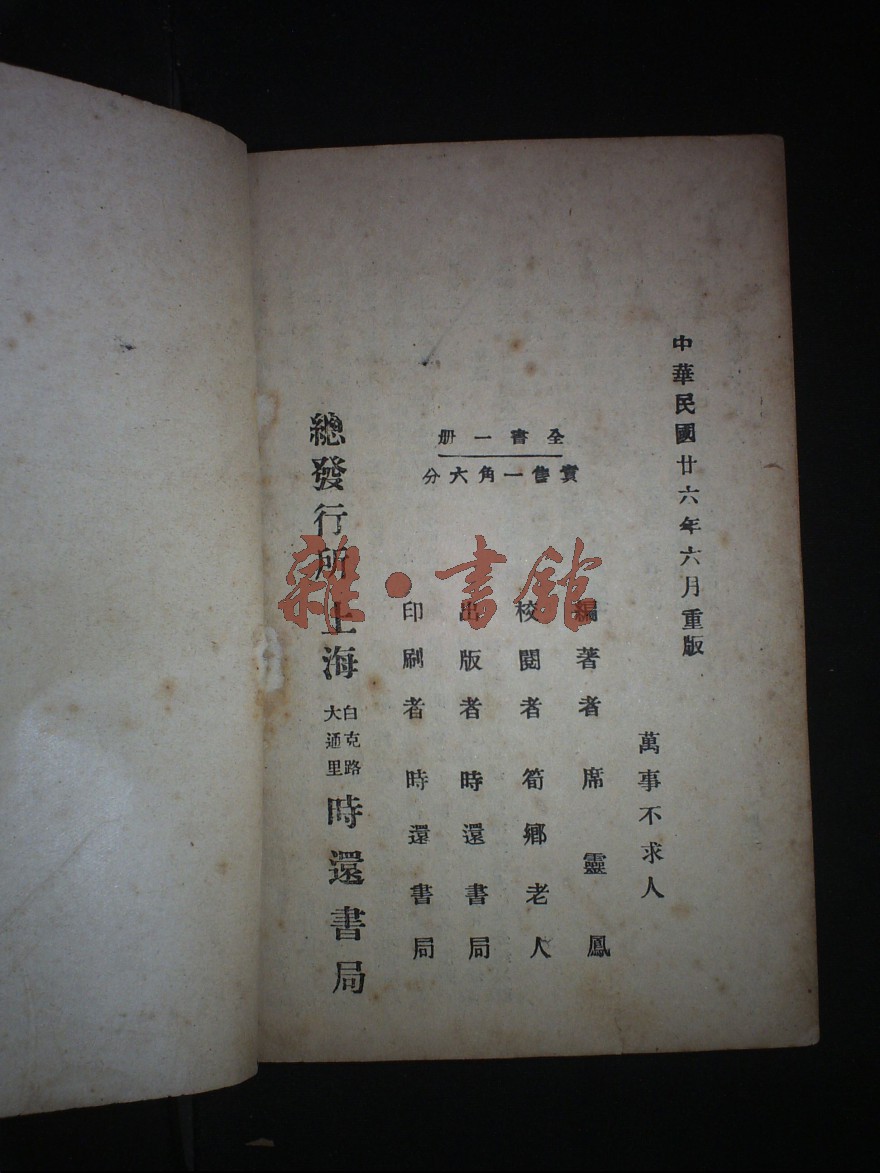 中華民國廿六年六月重版
萬事不求人
全書一册
實售一角六分
編著者 席靈鳳
校閱者 筍鄉老人
出版者 時還書局
印刷者 時還書局
總發行所 上海 白克路大通里 時還書局
雜·書館